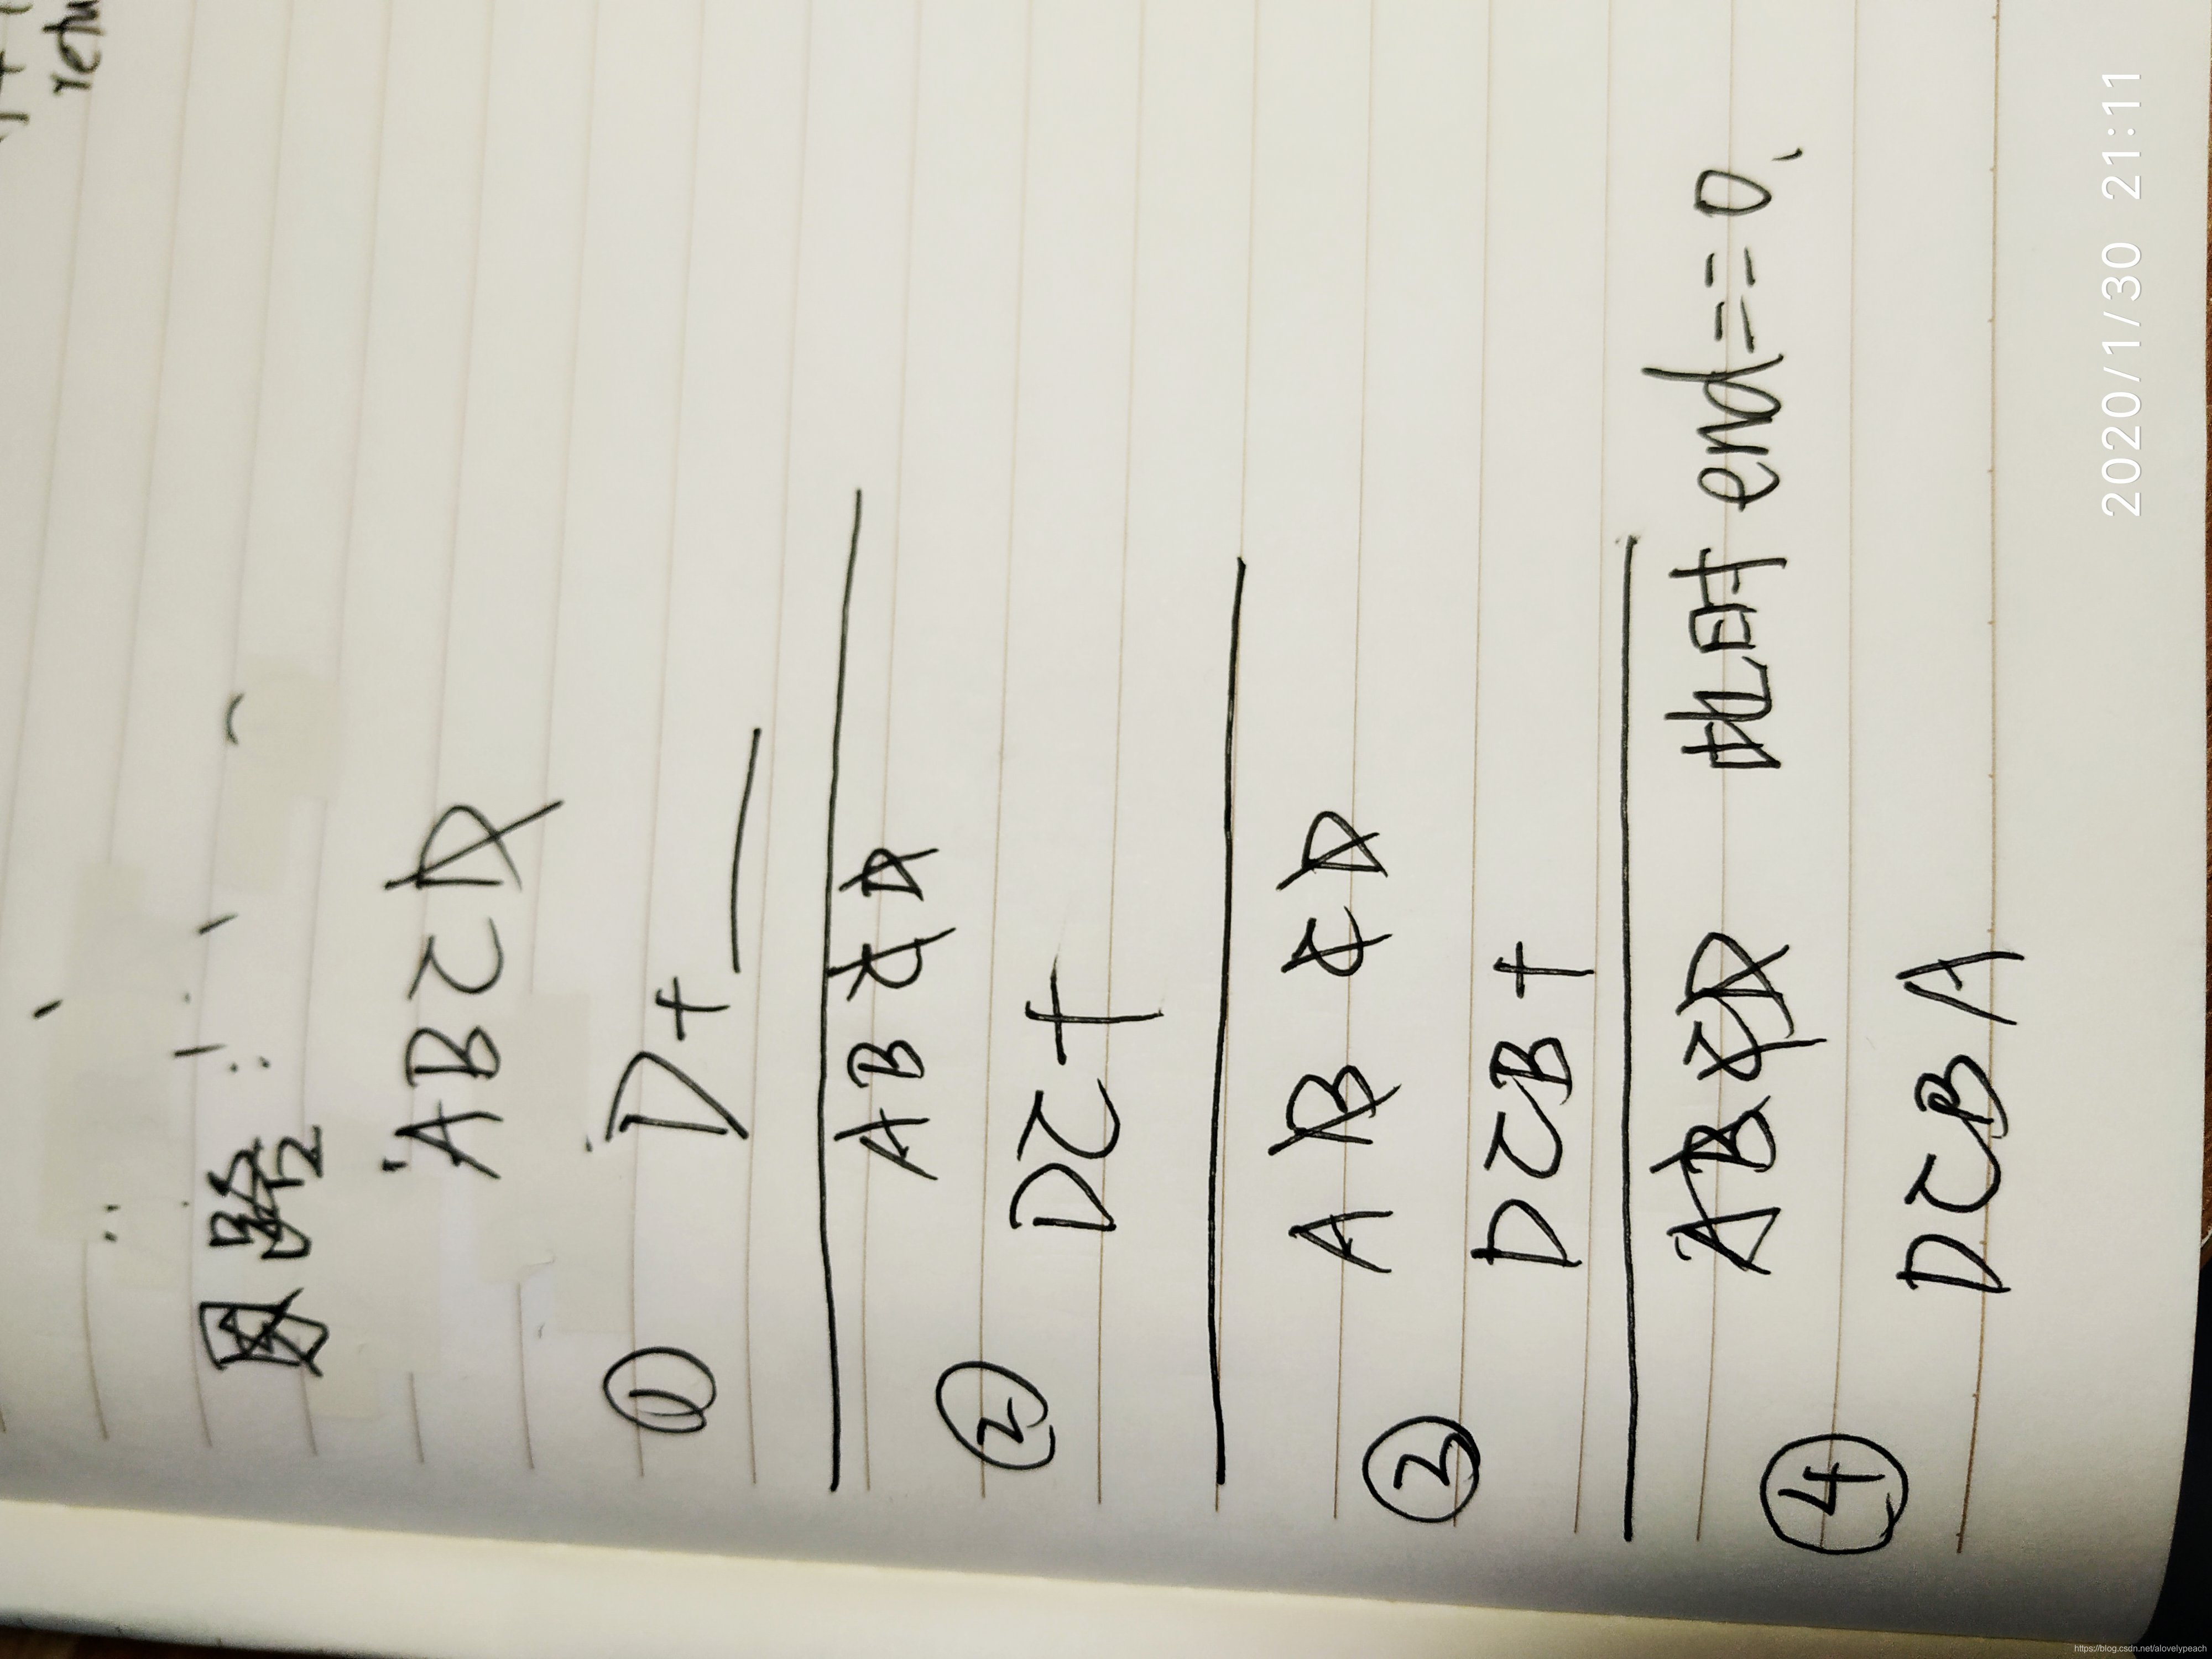 retu
思路
ABCD
① D+
ABCD
② DC+
AB CD
③ DCB+
ABCD 此时 end==0、
④ DCBA
2020/1/30 21:11
https://blog.csdn.net/alovelypeach